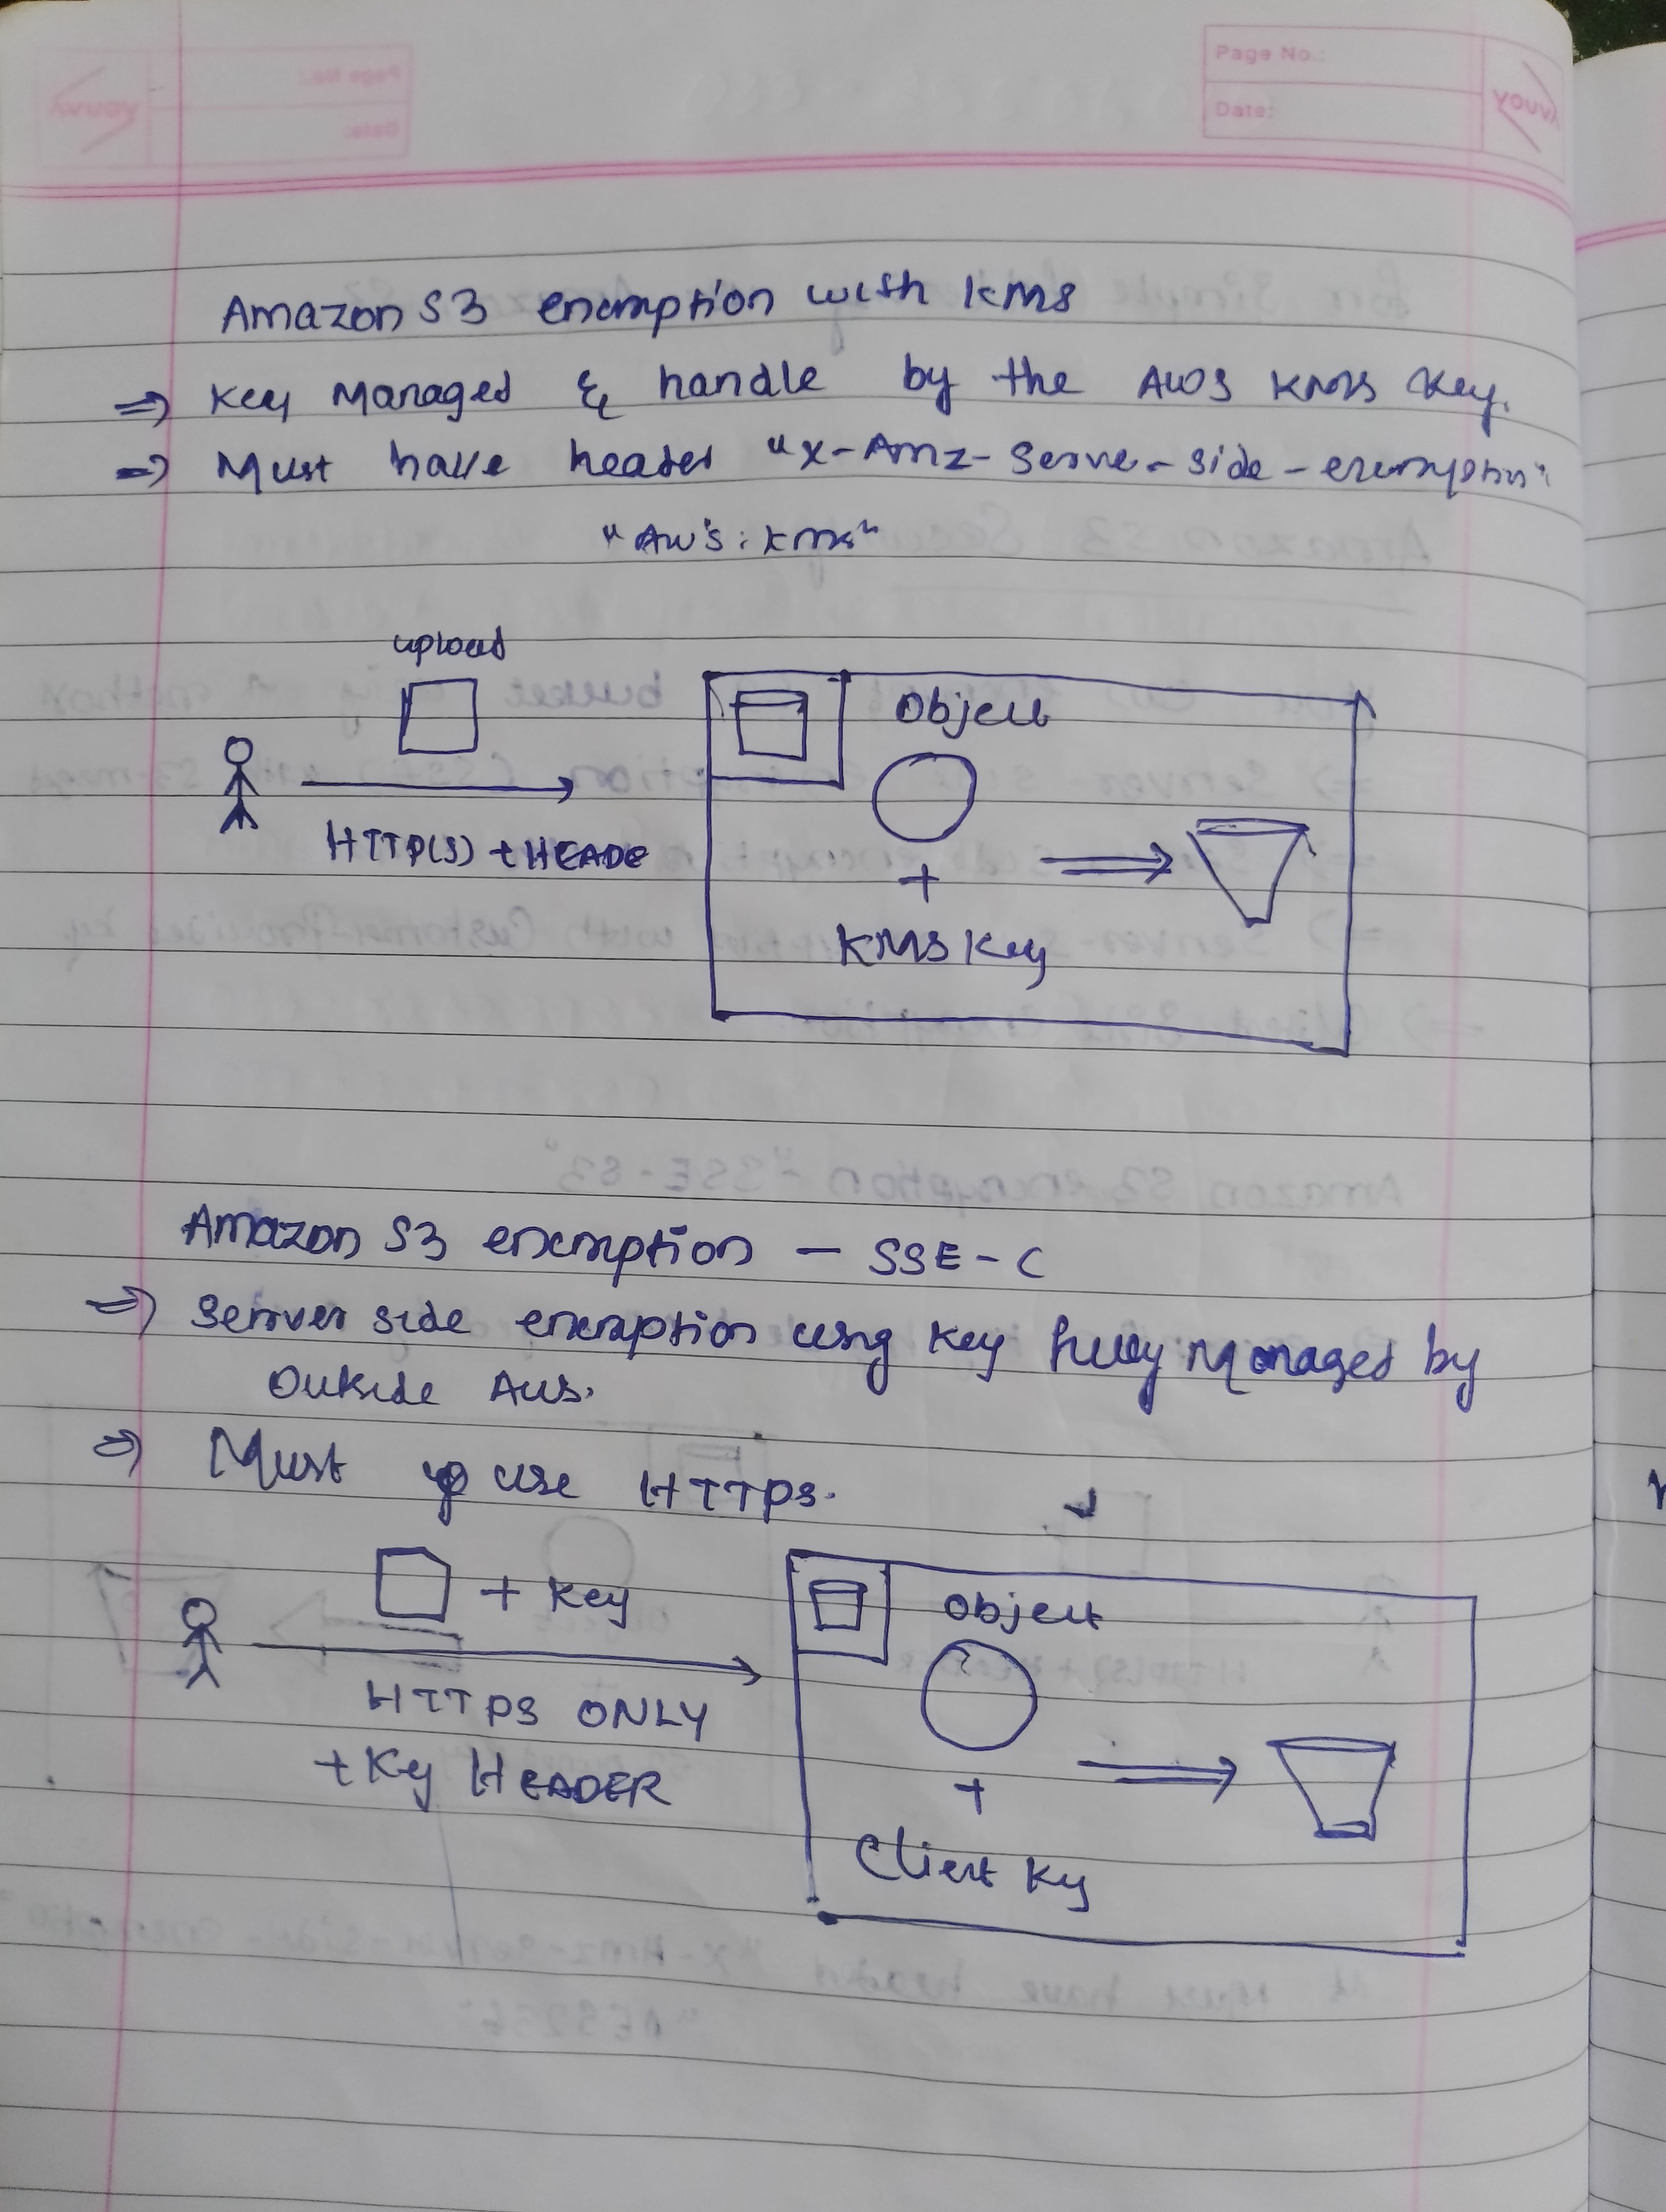 Page No.:
Date:
YOUVA
Amazon S3 encryption with KMS
⇒ Key Managed & handle by the AWS KMS Key.
⇒ Must have header "x-Amz-Server-side-encryption"
"AWS:KMS"
upload
Object
HTTP(S) + HEADE
+
KMS Key
Amazon S3 encryption - SSE-C
⇒ Server side encryption using Key fully Managed by
Outside AWS.
⇒ Must use HTTPS.
+ Key
Object
HTTPS ONLY
+ Key HEADER
+
Client Key